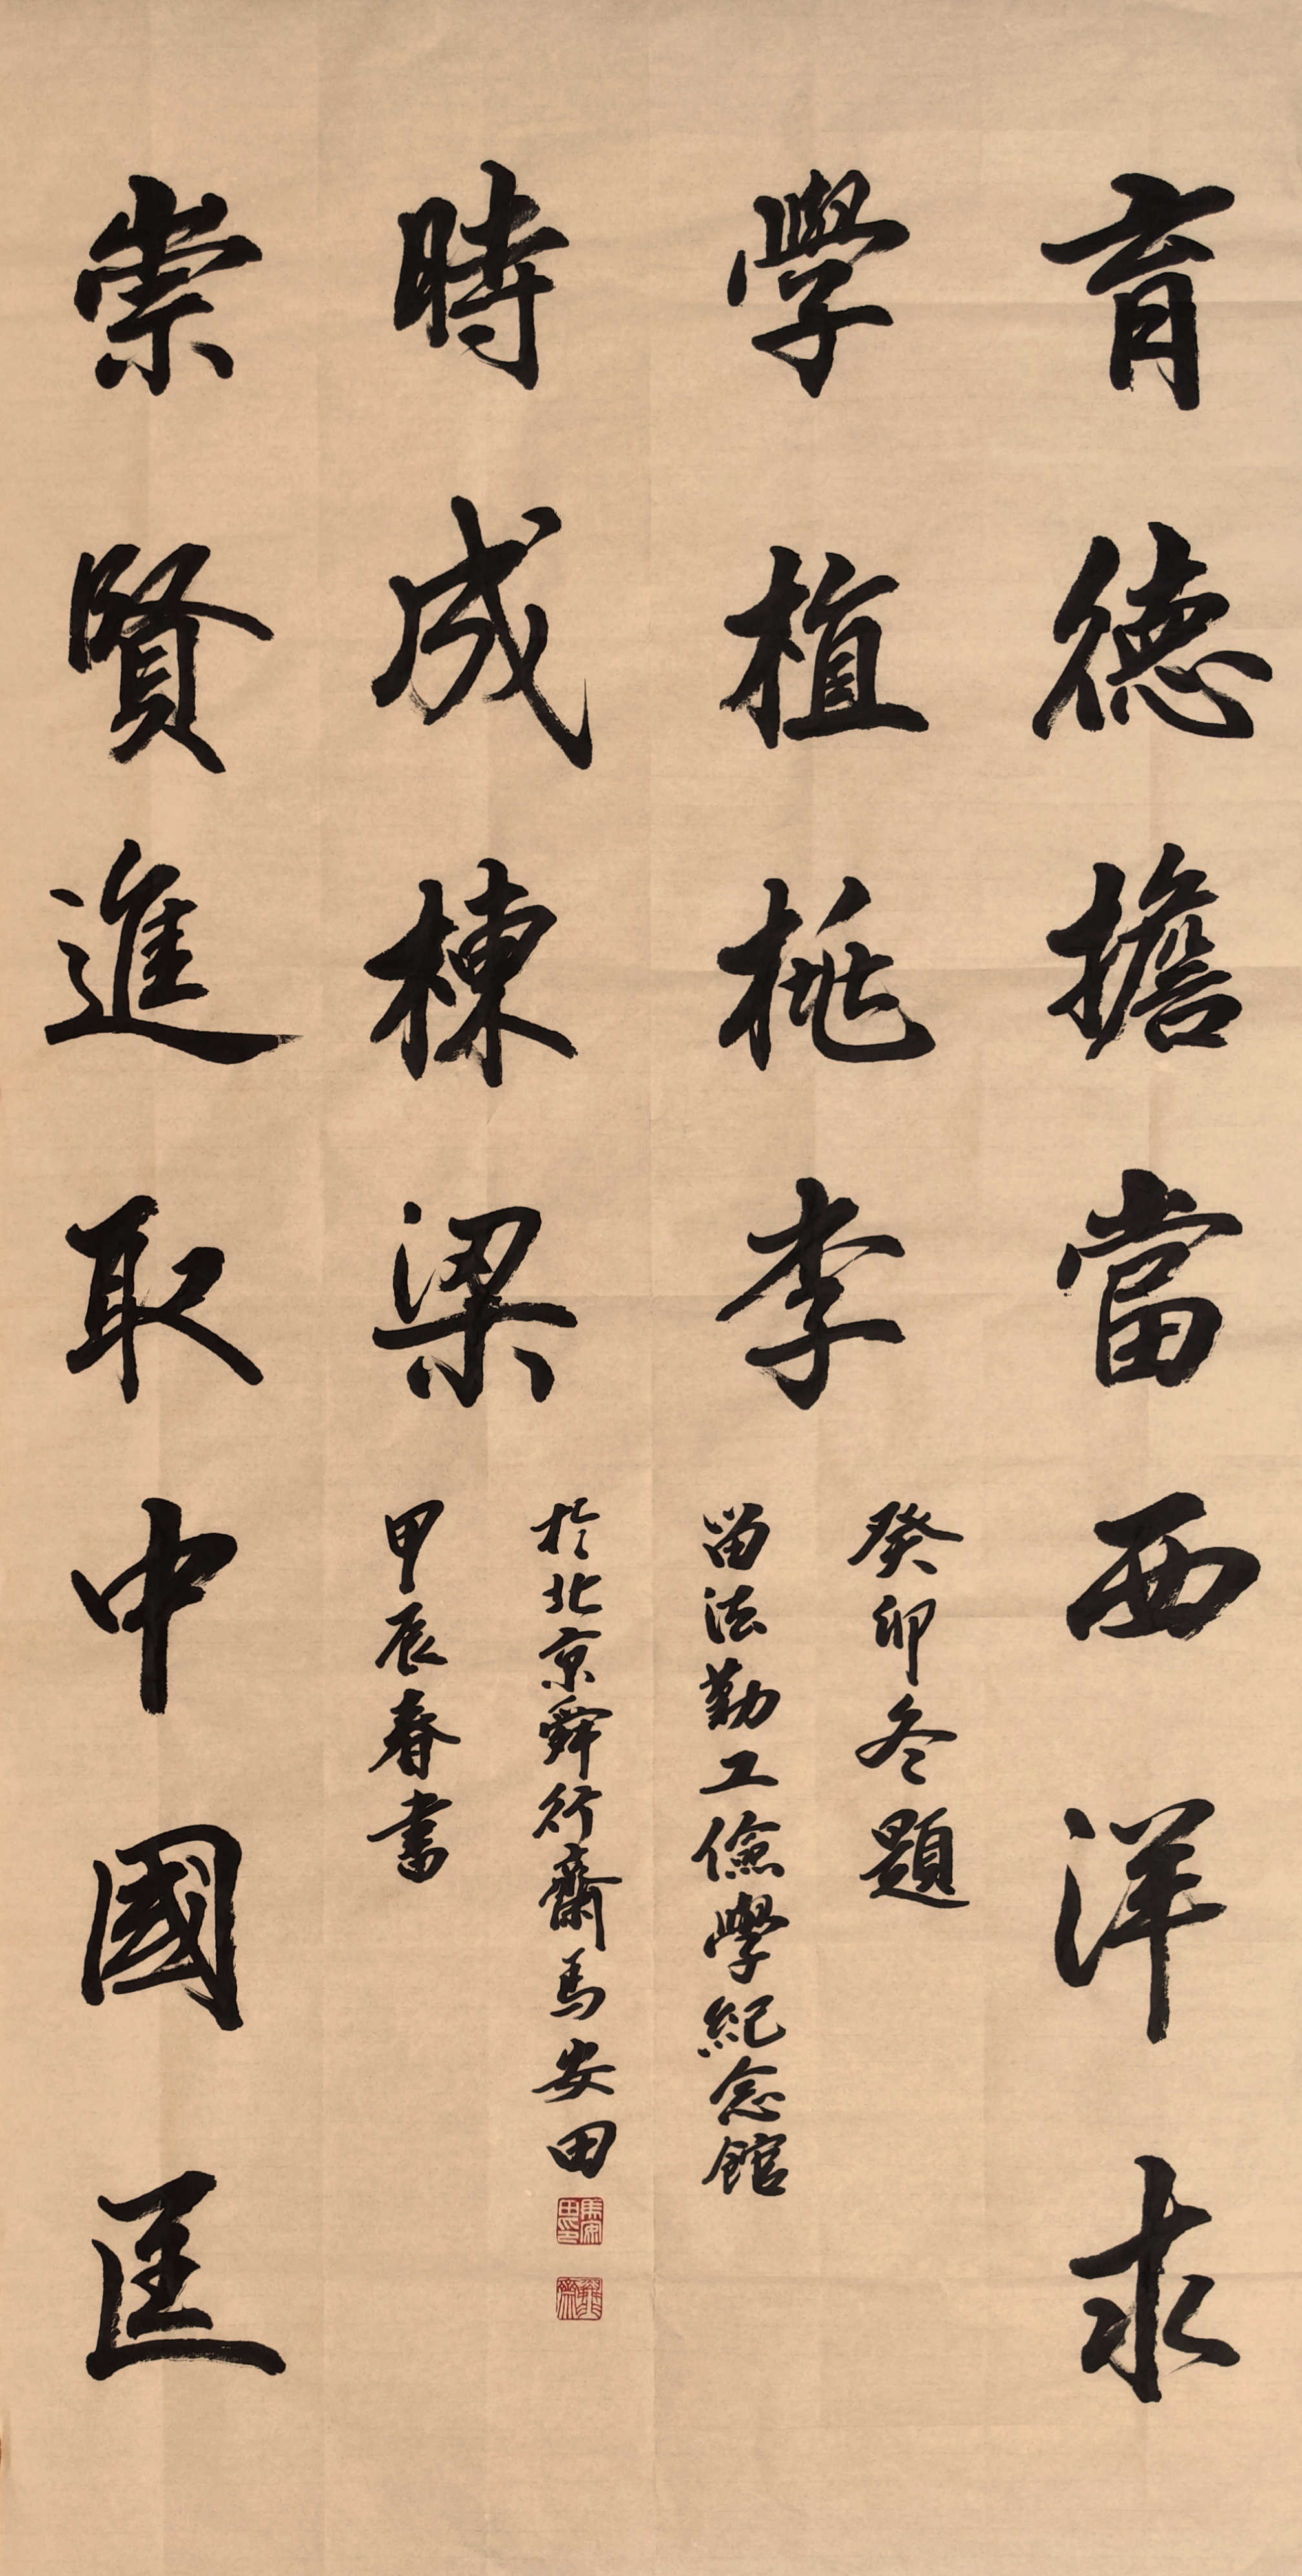 育德擔當西洋求
學植桃李
癸卯冬題
留法勤工儉學紀念館
崇賢進取中國匡
時成棟梁
甲辰春書
於北京舜行齋馬安田
馬安田印